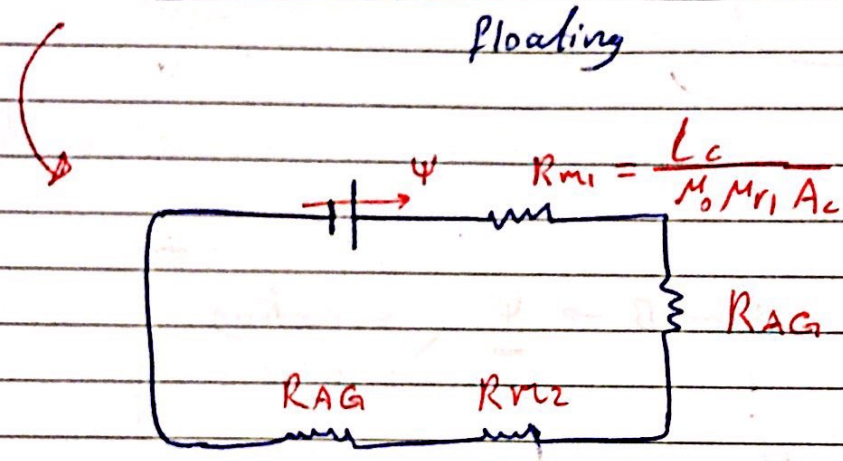 floating
Ψ
Rm1 = Lc / μ0 μr1 Ac
RAG
RAG Rm2